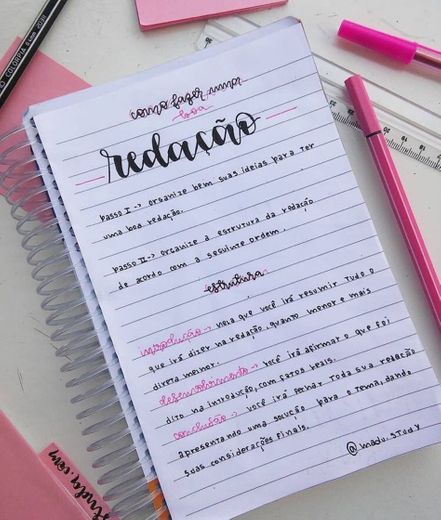 como fazer uma
boa
redação
Passo I -> organize bem suas ideias para ter
uma boa redação.
Passo II -> organize a estrutura da redação
de acordo com a seguinte ordem.
estrutura
introdução -> nela que você irá resumir tudo o
que irá dizer na redação, quanto menor e mais
direta melhor.
desenvolvimento -> você irá afirmar o que foi
dito na introdução, com fatos reais.
conclusão -> você irá fechar toda sua redação
apresentando uma solução para o tema, dando
suas considerações finais.
@madu.study